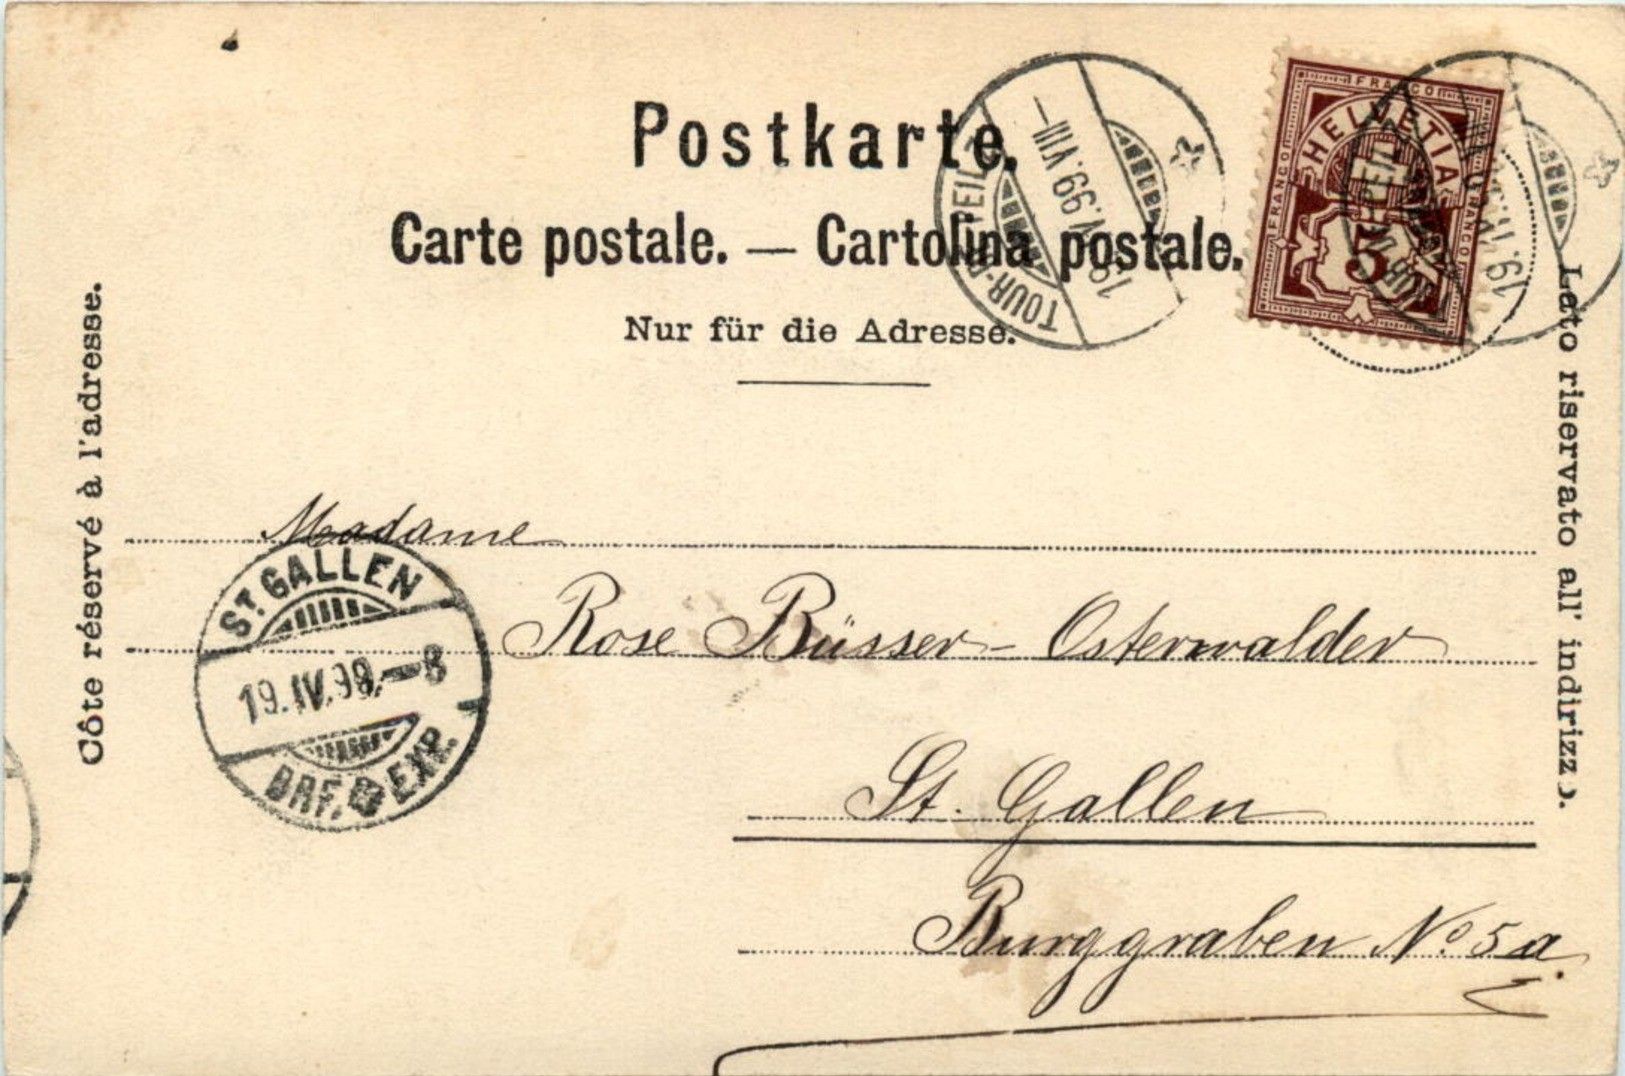 Postkarte.
Carte postale. — Cartolina postale.
Nur für die Adresse.
Côte réservé à l'adresse.
Lato riservato all' indirizzo.
TOUR-DE-PEILZ
18.IV.99.VIII—
FRANCO
FRANCO
FRANCO
HELVETIA
5
19.IV.99
Madame
Rose Büsser-Osterwalder
St. Gallen
Burggraben No 5a.
ST. GALLEN
19.IV.99.—8
BRF. EXP.